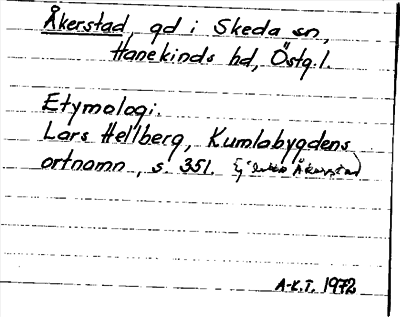 Åkerstad, gd i Skeda sn,
Hanekinds hd, Östg.l.
Etymologi.
Lars Hellberg, Kumlabygdens
ortnamn, s. 351. Åkerstad)
A-K.T. 1972